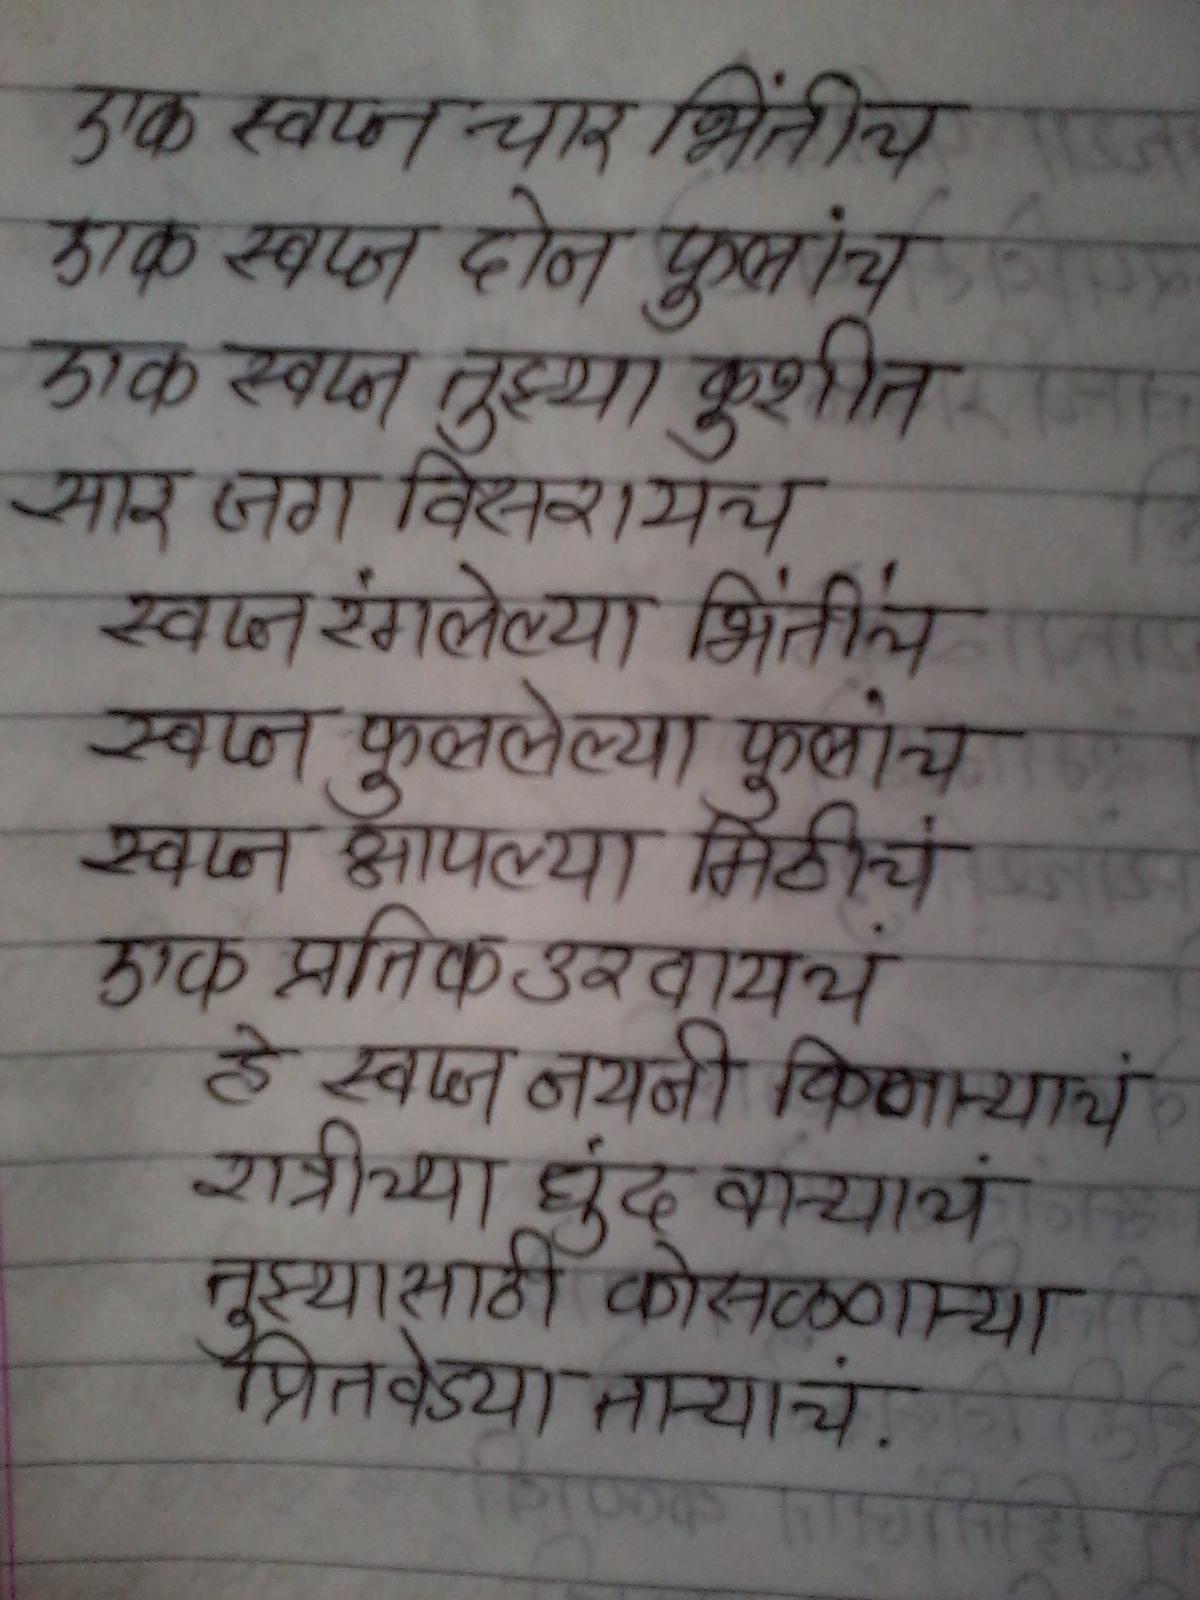 एक स्वप्न चार भिंतीच
एक स्वप्न दोन फुलांच
एक स्वप्न तुझ्या कुशीत
सार जग विसरायच
स्वप्न रंगलेल्या भिंतींच
स्वप्न फुललेल्या फुलांच
स्वप्न आपल्या मिठीचं
एक प्रतिक उरवायचं
हे स्वप्न नयनी किनाऱ्याचं
रात्रीच्या धुंद वाऱ्याचं
तुझ्यासाठी कोसळणाऱ्या
प्रितवेड्या ताऱ्याचं.